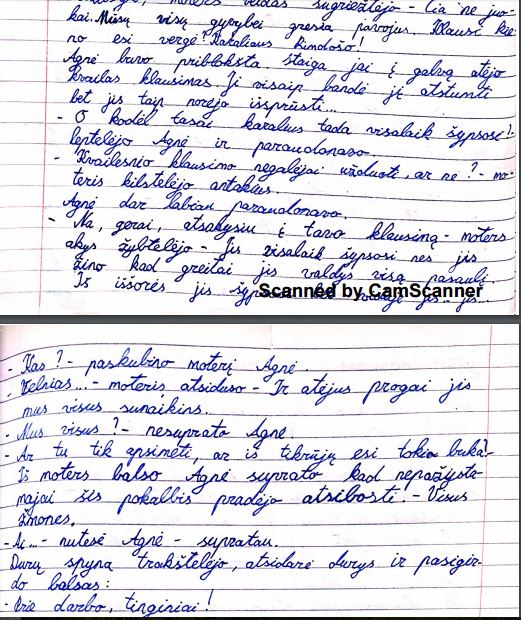 moters veidas sugriežtėjo - Čia ne juo-
kai. Mūsų visų gyvybei gresia pavojus. Klausi kie-
no esi vergė? Karaliaus Kindošo!
Agnė buvo priblokšta. Staiga jai į galvą atėjo
kvailas klausimas. Ji visaip bandė jį atstumti
bet jis taip norėjo išsprūsti...
- O kodėl tasai karalius tada visalaik šypsosi?-
leptelėjo Agnė ir paraudonavo.
- Kvailesnio klausimo negalėjai užduoti, ar ne? - mo-
teris kilstelėjo antakius.
Agnė dar labiau paraudonavo.
- Na, gerai, atsakysiu į tavo klausimą - moters
akys žybtelėjo - Jis visalaik šypsosi nes jis
žino kad greitai jis valdys visą pasaulį.
Iš išorės jis
Scanned by CamScanner
- Kas? - paskubino moterį Agnė.
- Velnias... - moteris atsiduso - Ir atėjus progai jis
mus visus sunaikins.
- Mus visus? - nesuprato Agnė
- Ar tu tik apsimeti, ar iš tikrūjų esi tokia buka?-
Iš moters balso Agnė suprato kad nepažįsta-
majai šis pokalbis pradėjo atsibosti. - Visus
žmones.
- Ai... - nutęsė Agnė - supratau.
Durų spyna trakštelėjo, atsidarė durys ir pasigir-
do balsas:
- Prie darbo, tinginiai!